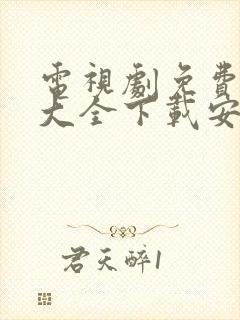 電視劇免費
大全下載安
君天醉1